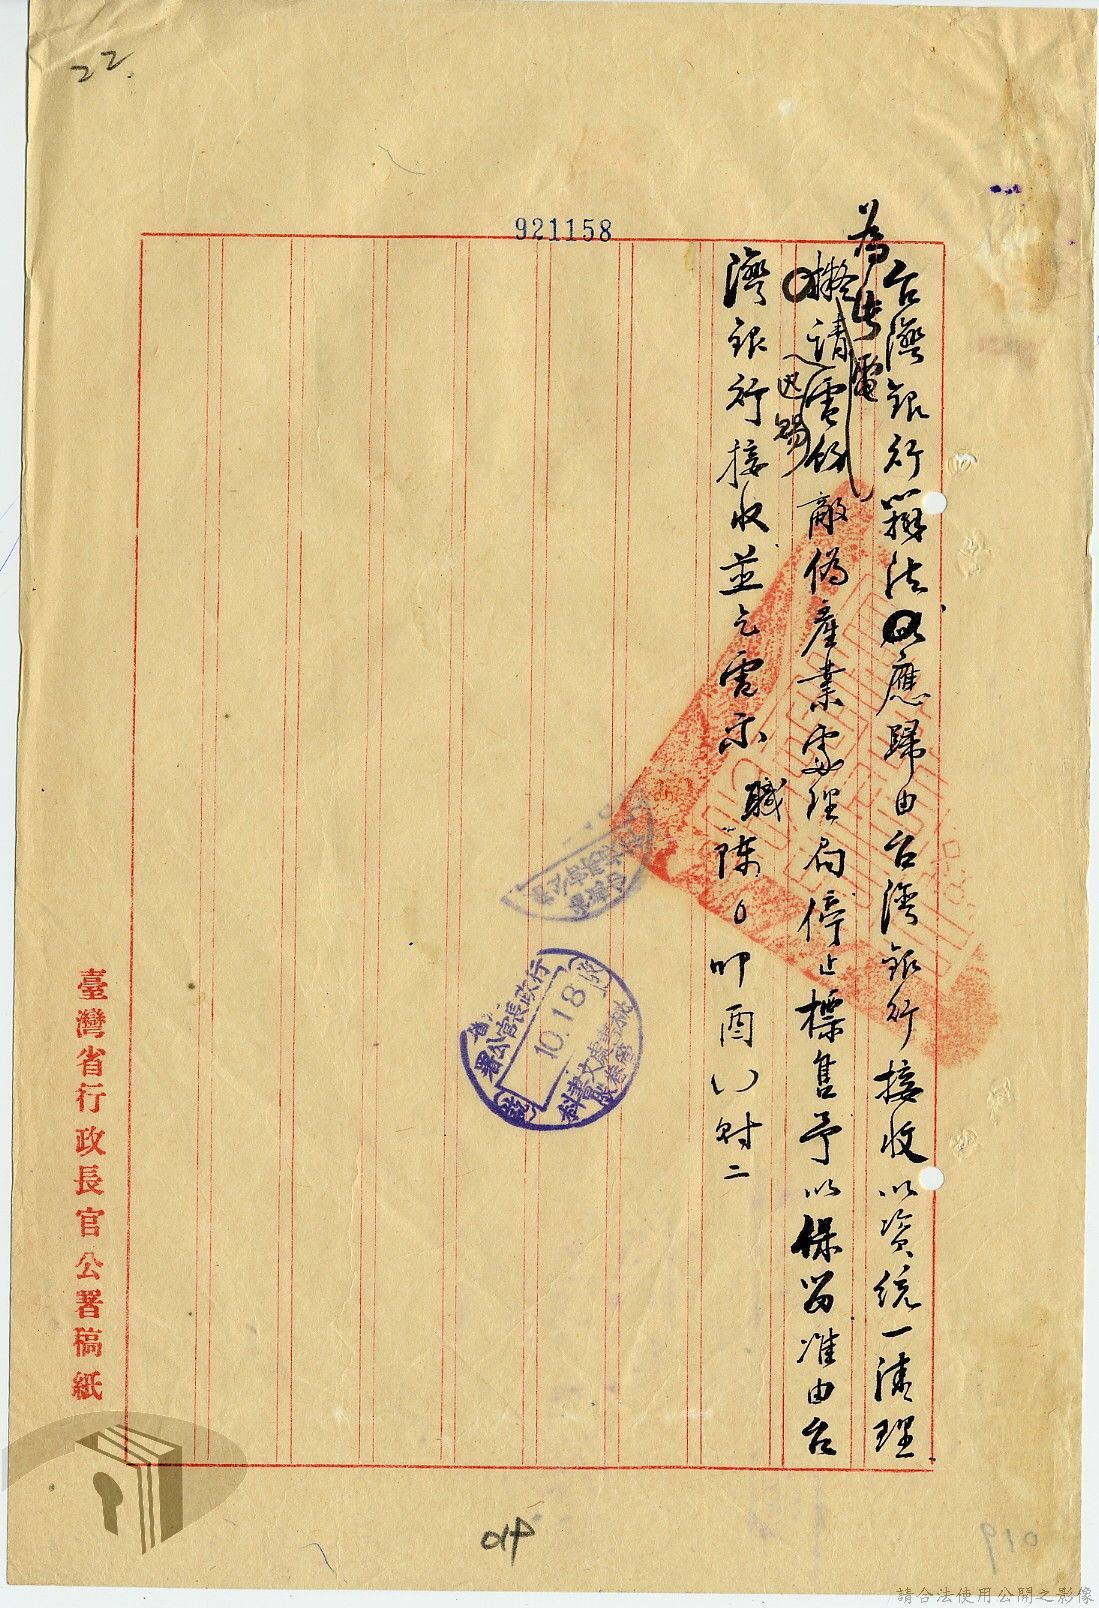 22
921158
台灣銀行辦法應歸由台灣銀行接收以資統一清理
為特電
擬請電飭敵偽產業處理局停止標售予以保留准由台
迅賜
灣銀行接收並乞電示 職陳○叩酉 財二
行政長官公署
10.18
臺灣省行政長官公署稿紙
019
請合法使用公開之影像